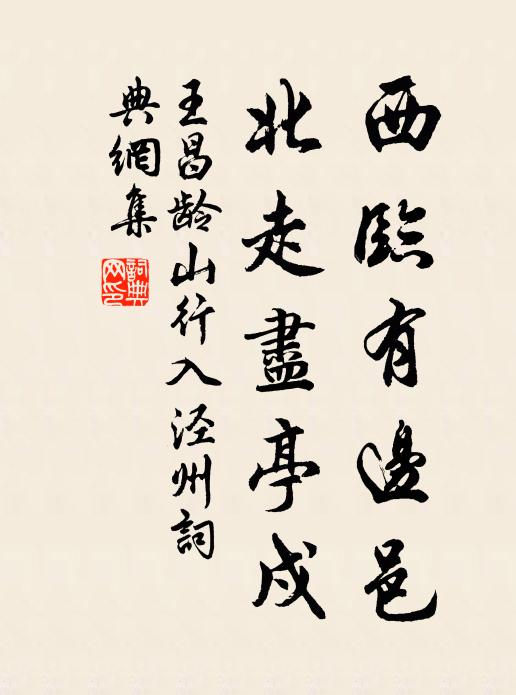 西臨有邊邑
北走盡亭戍
王昌龄山行入泾州詞
典網集
詞典網印